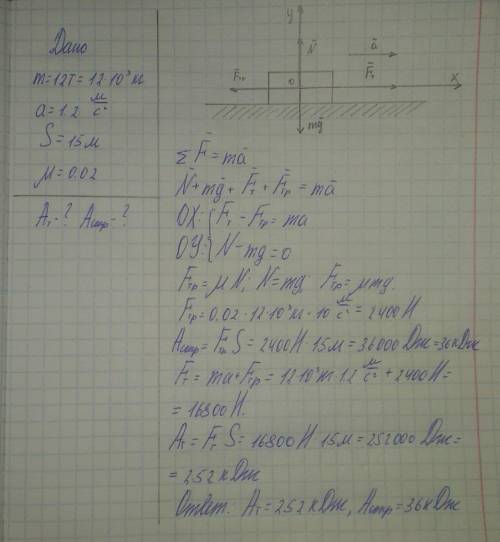 Дано
m=12т=12·10³кг
a=1.2 м/с²
S=15м
μ=0.02
Aт-? Aсопр-?
y
N⃗
a⃗
F⃗тр
0
F⃗т
X
mg⃗
ΣF⃗=ma⃗
N⃗+mg⃗+F⃗т+F⃗тр=ma⃗
OX: { Fт-Fтр=ma
OY: { N-mg=0
Fтр=μN; N=mg; Fтр=μmg.
Fтр=0.02·12·10³кг·10 м/с²=2400Н
Aсопр=Fтр S=2400Н·15м=36000Дж=36кДж
Fт=ma+Fтр=12·10³кг·1.2 м/с²+2400Н=
=16800Н.
Aт=Fт S=16800Н·15м=252000Дж=
=252кДж
Ответ. Aт=252кДж, Aсопр=36кДж